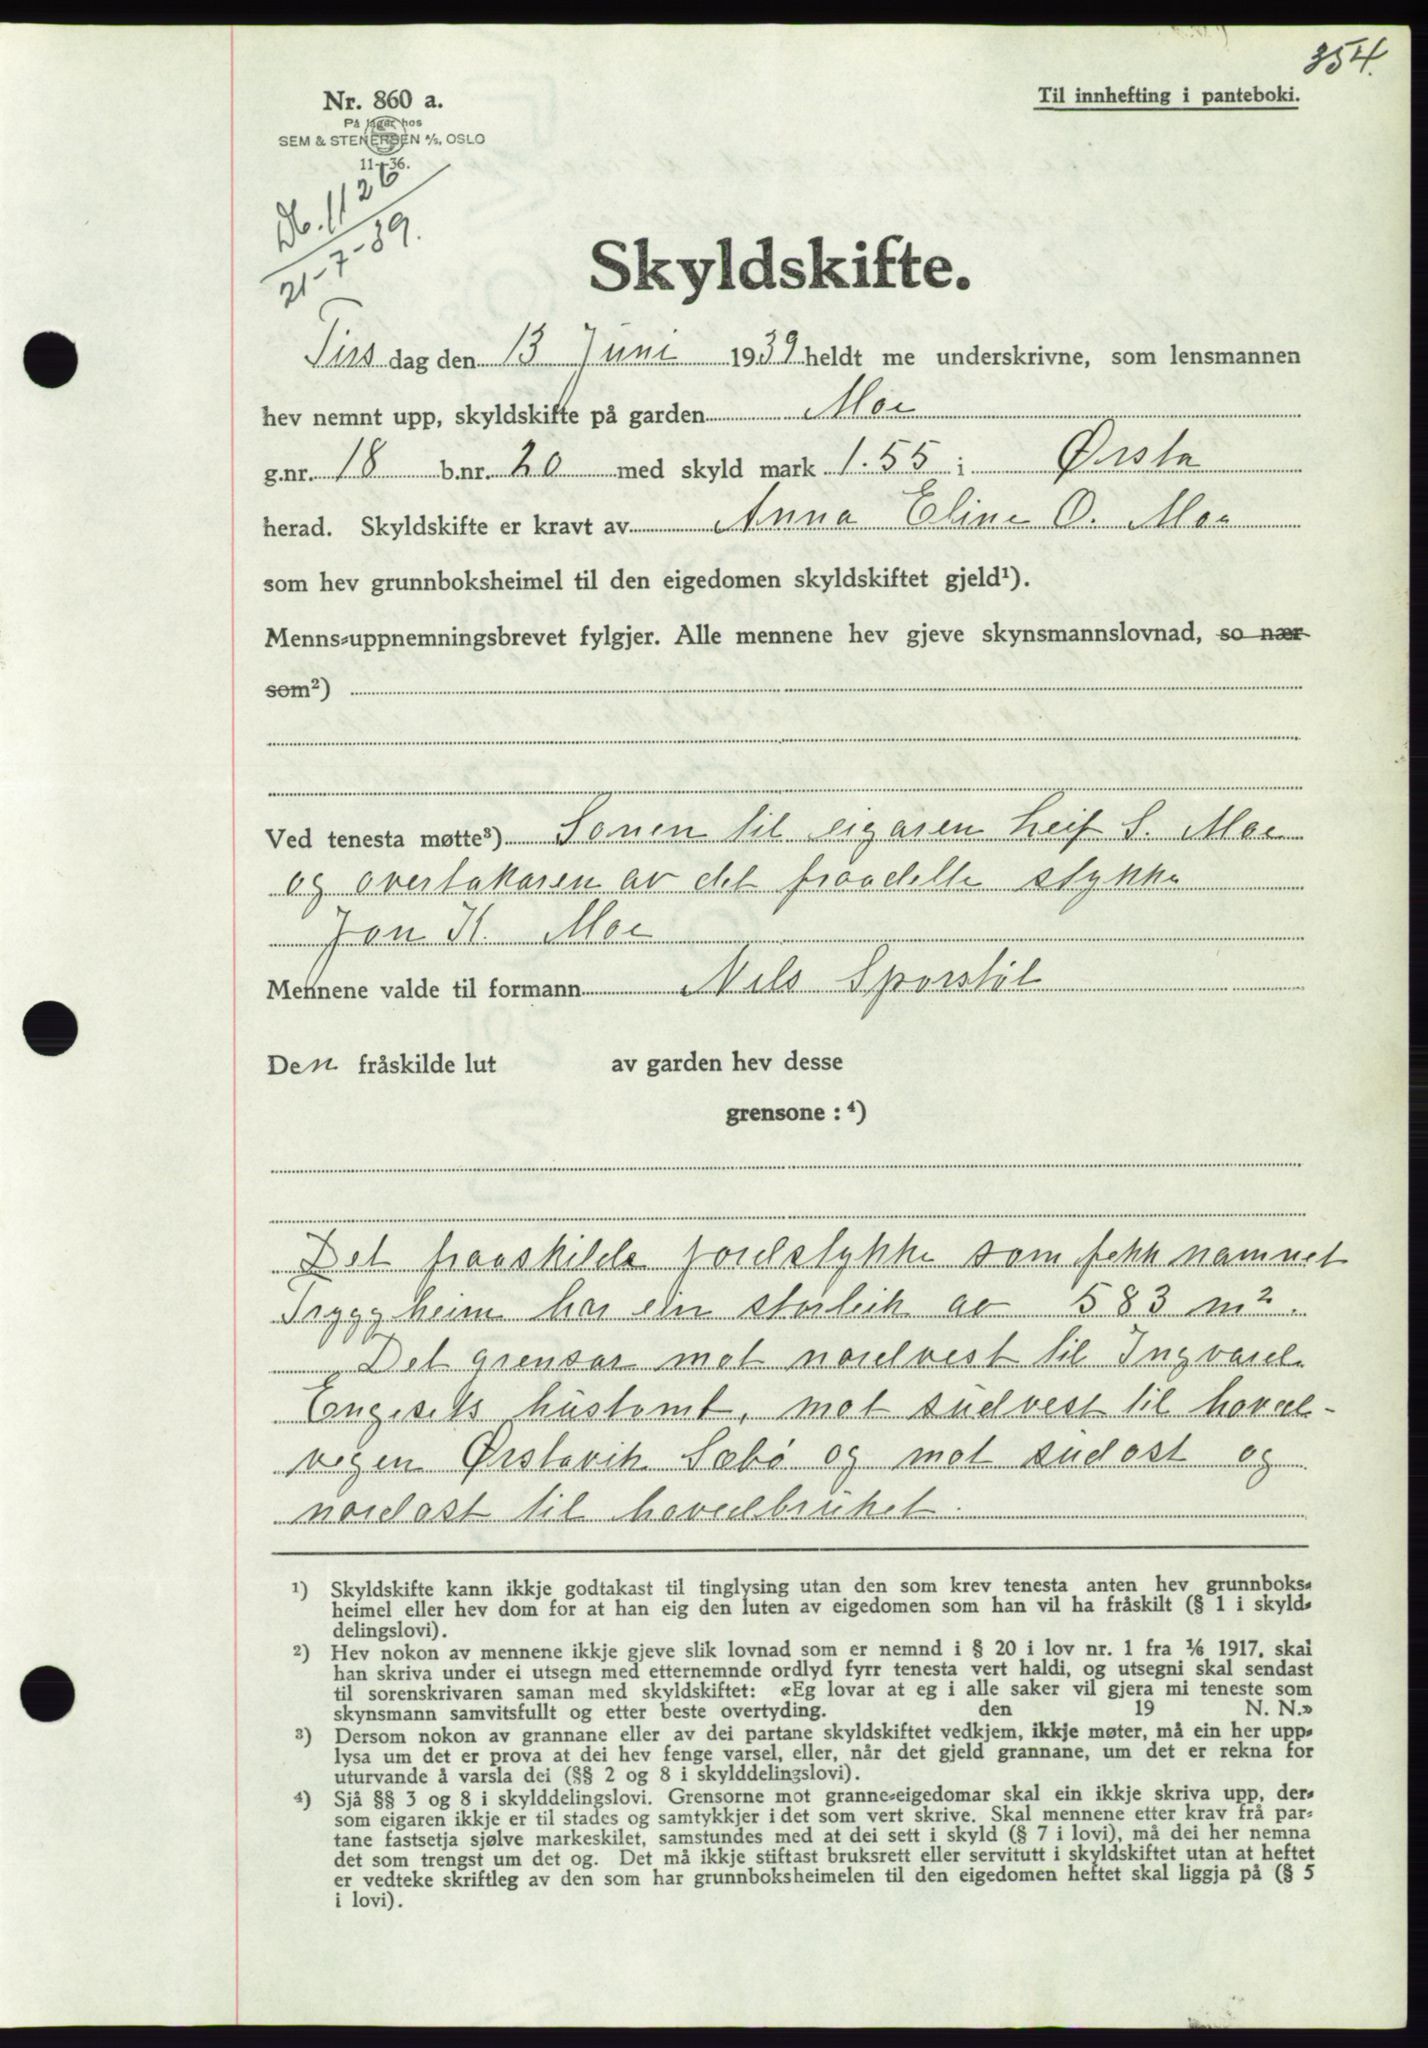 354.
Nr. 860 a.
Til innhefting i panteboki.
På lager hos
SEM & STENERSEN A/S, OSLO
11—36.
Db. 1126
21-7-39.
Skyldskifte.
Tirsdag den 13 Juni 1939 heldt me underskrivne, som lensmannen
hev nemnt upp, skyldskifte på garden Moe
g.nr. 18 b.nr. 20 med skyld mark 1.55 i Ørsta
herad. Skyldskifte er kravt av Anna Eline O. Moe
som hev grunnboksheimel til den eigedomen skyldskiftet gjeld¹).
Menns-uppnemningsbrevet fylgjer. Alle mennene hev gjeve skynsmannslovnad, so nær
som²)
Ved tenesta møtte³) Sonen til eigaren Leif S. Moe
og overtakaren av det fraadelte stykke
Jon K. Moe
Mennene valde til formann Nils Sporstøl
Den fråskilde lut av garden hev desse
grensone : ⁴)
Det fraaskilde jordstykke som fekk namnet
Tryggheim har ein storleik av 583 m².
Det grensar mot nordvest til Ingvard
Engesets hustomt, mot sudvest til hoved-
vegen Ørstavik Sæbø og mot sudost og
nordost til hovedbruket.
¹) Skyldskifte kann ikkje godtakast til tinglysing utan den som krev tenesta anten hev grunnboks-
heimel eller hev dom for at han eig den luten av eigedomen som han vil ha fråskilt (§ 1 i skyld-
delingslovi).
²) Hev nokon av mennene ikkje gjeve slik lovnad som er nemnd i § 20 i lov nr. 1 fra 1/6 1917, skal
han skriva under ei utsegn med etternemnde ordlyd fyrr tenesta vert haldi, og utsegni skal sendast
til sorenskrivaren saman med skyldskiftet: «Eg lovar at eg i alle saker vil gjera mi teneste som
skynsmann samvitsfullt og etter beste overtyding. den 19 N. N.»
³) Dersom nokon av grannane eller av dei partane skyldskiftet vedkjem, ikkje møter, må ein her upp-
lysa um det er prova at dei hev fenge varsel, eller, når det gjeld grannane, um det er rekna for
uturvande å varsla dei (§§ 2 og 8 i skylddelingslovi).
⁴) Sjå §§ 3 og 8 i skylddelingslovi. Grensorne mot granne-eigedomar skal ein ikkje skriva upp, der-
som eigaren ikkje er til stades og samtykkjer i det som vert skrive. Skal mennene etter krav frå par-
tane fastsetja sjølve markeskilet, samstundes med at dei sett i skyld (§ 7 i lovi), må dei her nemna
det som trengst um det og. Det må ikkje stiftast bruksrett eller servitutt i skyldskiftet utan at heftet
er vedteke skriftleg av den som har grunnboksheimelen til den eigedomen heftet skal liggja på (§ 5
i lovi).